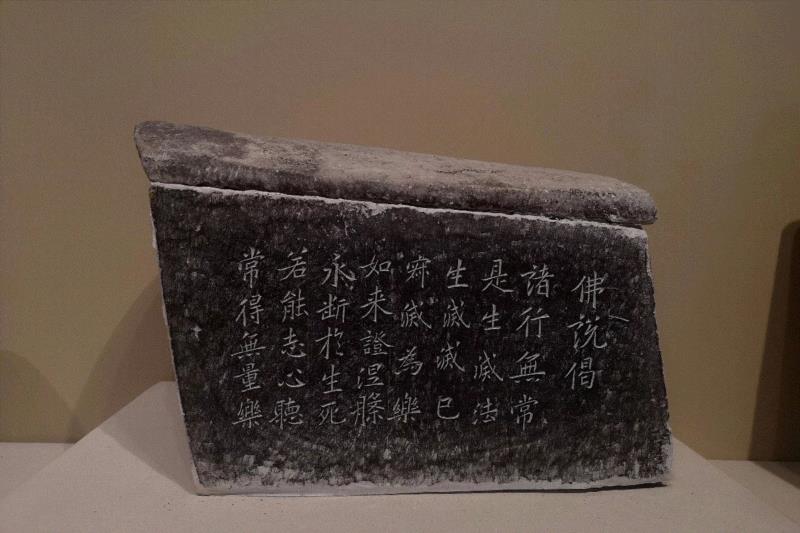 佛說偈
諸行無常
是生滅法
生滅滅已
㝷滅為樂
如来證涅槃
永断於生死
若能志心聽
常得無量樂